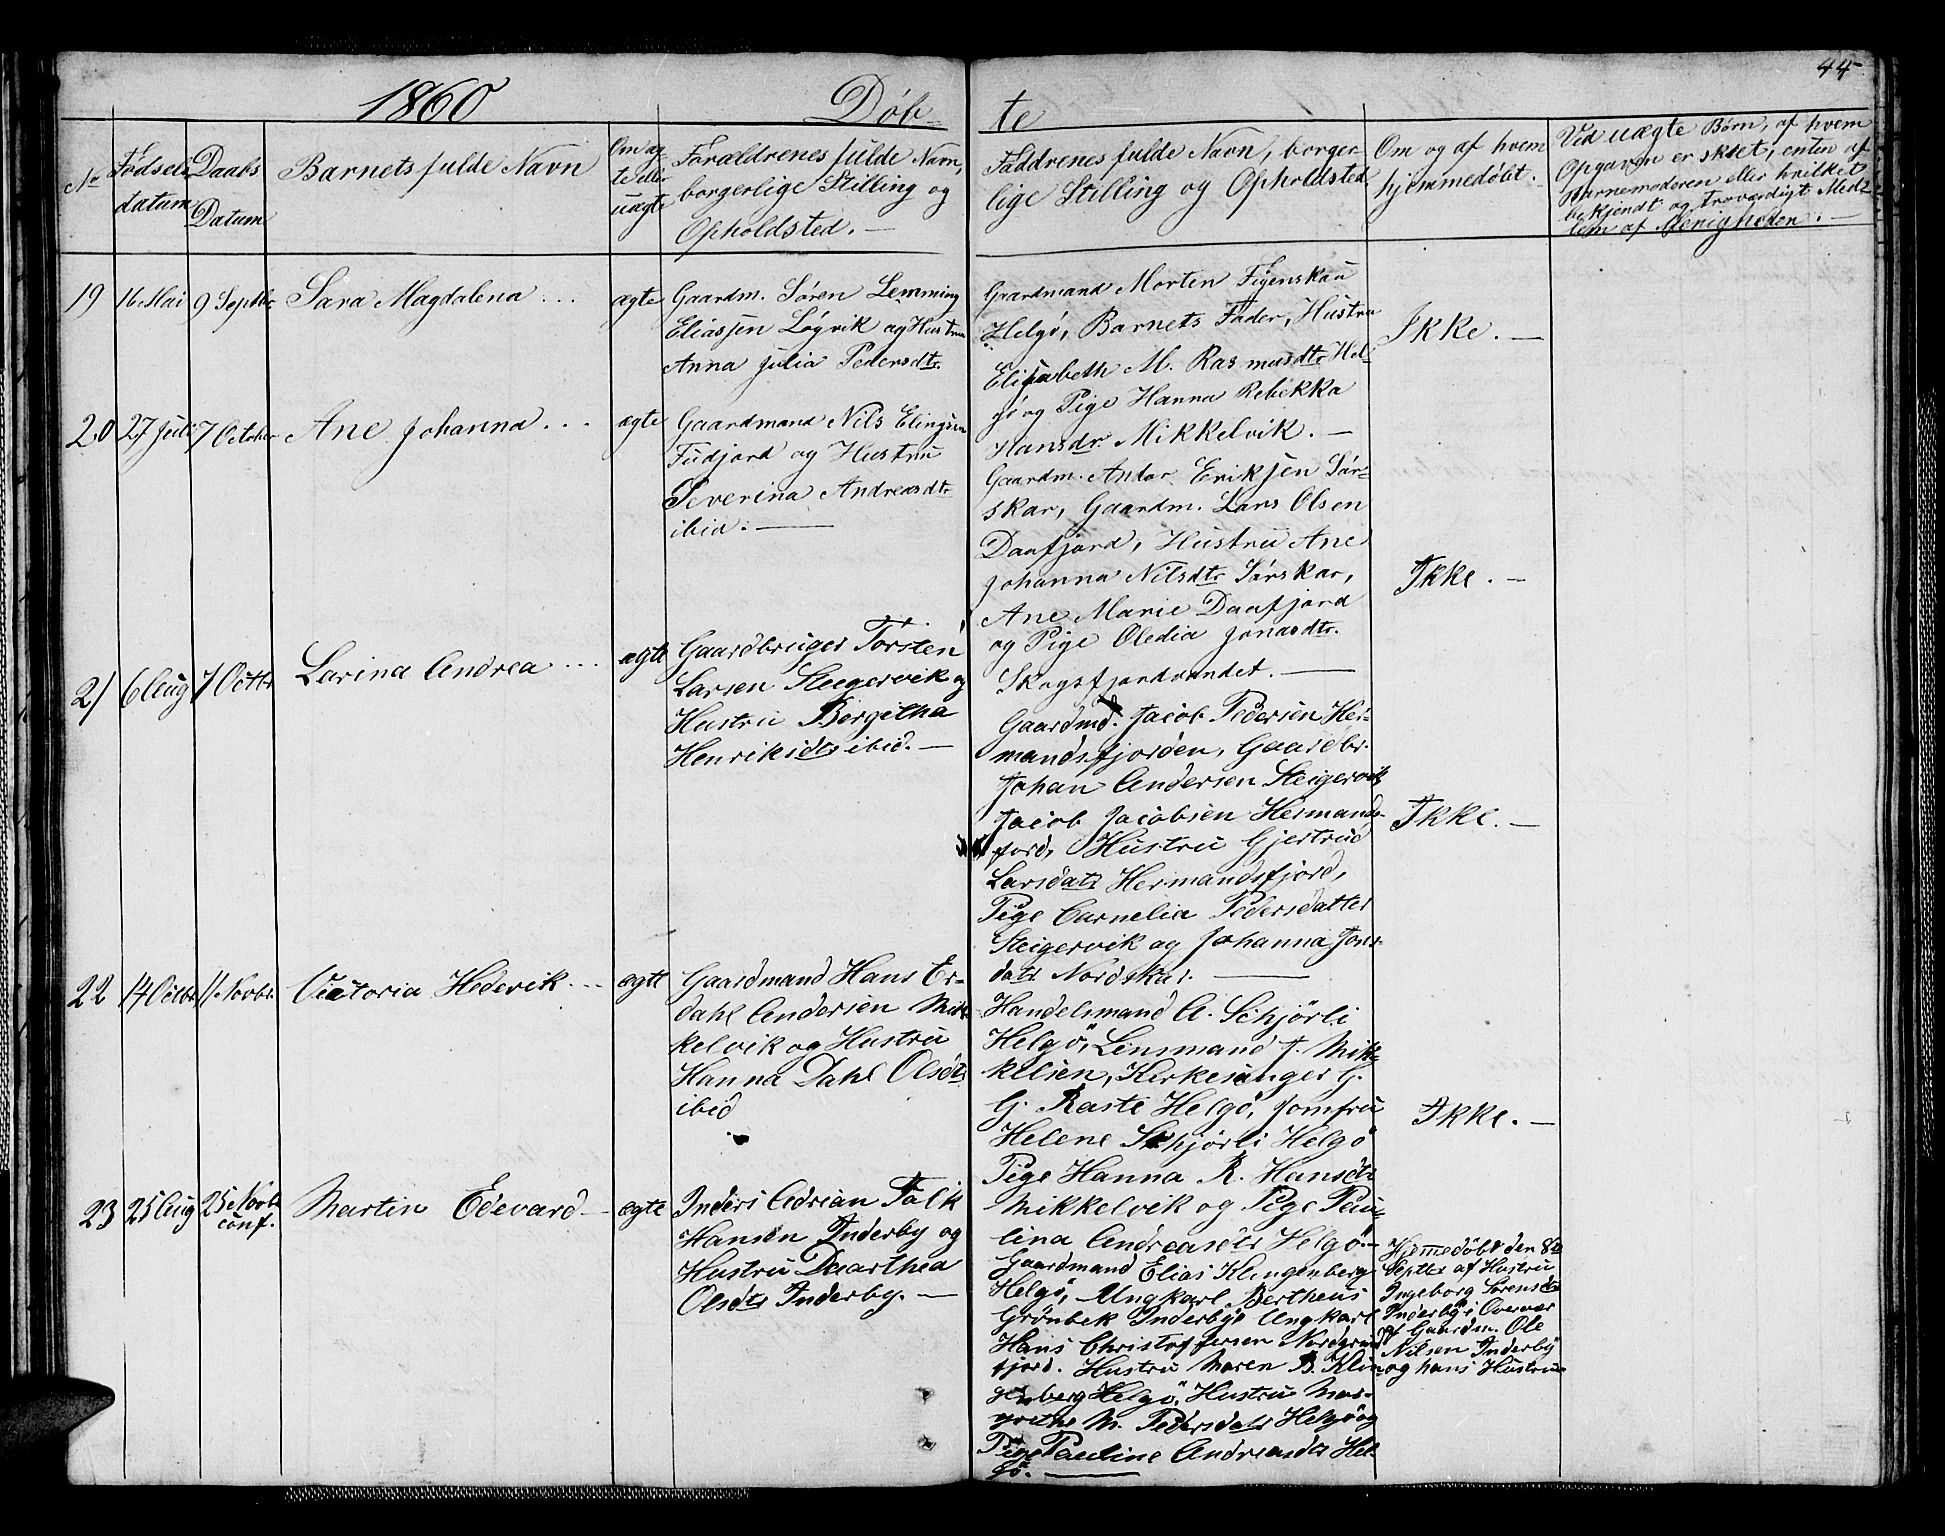 44
1860 Döb-
te
No
Födsels
datum
Daabs
Datum
Barnets fulde Navn
Om æg-
te eller
uægte
Forældrenes fulde Navn,
borgerlige Stilling og
Opholdsted. —
Faddrenes fulde Navn, borger-
lige Stilling og Opholdsted
Om og af hvem
hjemmedöbt.
Ved uægte Børn, af hvem
Opgaven er skeet; enten af
Barnemoderen eller hvilket
bekjendt og troværdigt Med-
lem af Menigheden. —
19 16 Mai 9 Septbr Sara Magdalena ... ægte
Gaardm. Sören Lemming
Eliassen Lögvik og Hustru
Anna Julia Pedersdtr.
Gaardmand Morten Figenskau
Helgö, Barnets Fader, Hustru
Elisabeth M. Rasmusdtr Hel-
gö og Pige Hanna Rebekka
Hansdr Mikkelvik. —
Ikke. —
20 27 Juli 7 October Ane Johanna ... ægte
Gaardmand Nils Elingsen
Fudjord og Hustru
Severina Andreasdtr
ibid. —
Gaardm. Andor Eriksen Sör-
skar, Gaardm. Lars Olsen
Daafjord, Hustru Ane
Johanna Nilsdtr Sörskar,
Ane Marie Daafjord
og Pige Oledia Jonasdtr.
Skogsfjordvandet. —
Ikke. —
21 6 Aug 7 Octbr Larina Andrea ... ægte
Gaardbruger Torsten
Larsen Steigervik og
Hustru Bergitha
Henriksdtr ibid. —
Gaardmd. Jacob Pedersen Her-
mandsfjorden, Gaardbr.
Johan Andersen Steigervik
Jacob Jacobsen Hermands-
fjord, Hustru Gjertrud
Larsdatr Hermandsfjord,
Pige Carnelia Pedersdatter
Steigervik og Johanna Jons-
datr Nordskar. —
Ikke. —
22 14 Octbr 11 Novbr. Victoria Hedevik ... ægte
Gaardmand Hans Er-
dahl Andersen Mik-
kelvik og Hustru
Hanna Dahl Olsdtr
ibid
Handelsmand A. Schjörli
Helgö, Lensmand J. Mik-
kelsen, Kirkesanger G.
G. Raste Helgö, Jomfru
Helene Schjörli Helgö
Pige Hanna R. Hansdtr
Mikkelvik og Pige Pau-
lina Andreasdtr Helgö. —
Ikke. —
23 25 Aug 25de Novbr
conf.
Martin Edevard — ægte
Inders Adrian Falk
Hansen Inderby og
Hustru Daarthea
Olsdtr Inderby. —
Gaardmand Elias Klingenberg
Helgö, Ungkarl Bertheus
Grönbek Inderby, Ungkarl
Hans Christoffersen Nordgrund-
fjord. Hustru Maren B. Klin-
genberg Helgö, Hustru Mar-
grethe M. Pedersdatr Helgö og
Pige Pauline Andreasdtr Hel-
gö. —
Hjemedöbt den 8de
Septbr af Hustru
Ingeborg Sörensdtr
Inderby i Overvær
af Gaardm. Ole
Nilsen Inderby
og hans Hustru